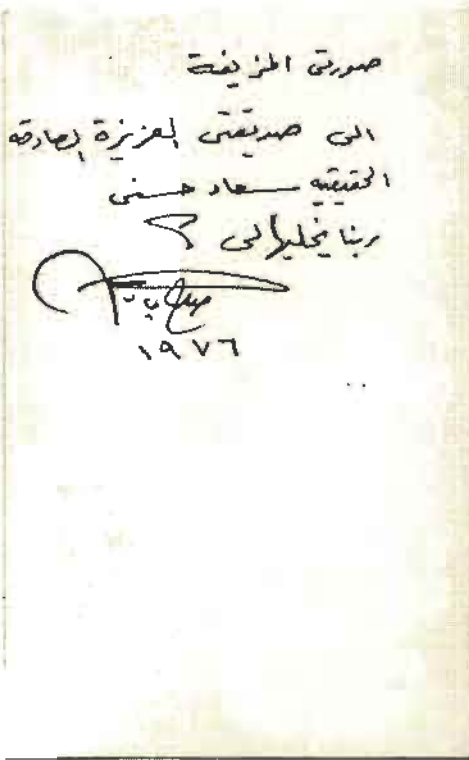 صورتى المزيفة
الى صديقتى العزيزة الصادقه
الحقيقيه سعاد حسنى
ربنا يخليها لى
١٩٧٦